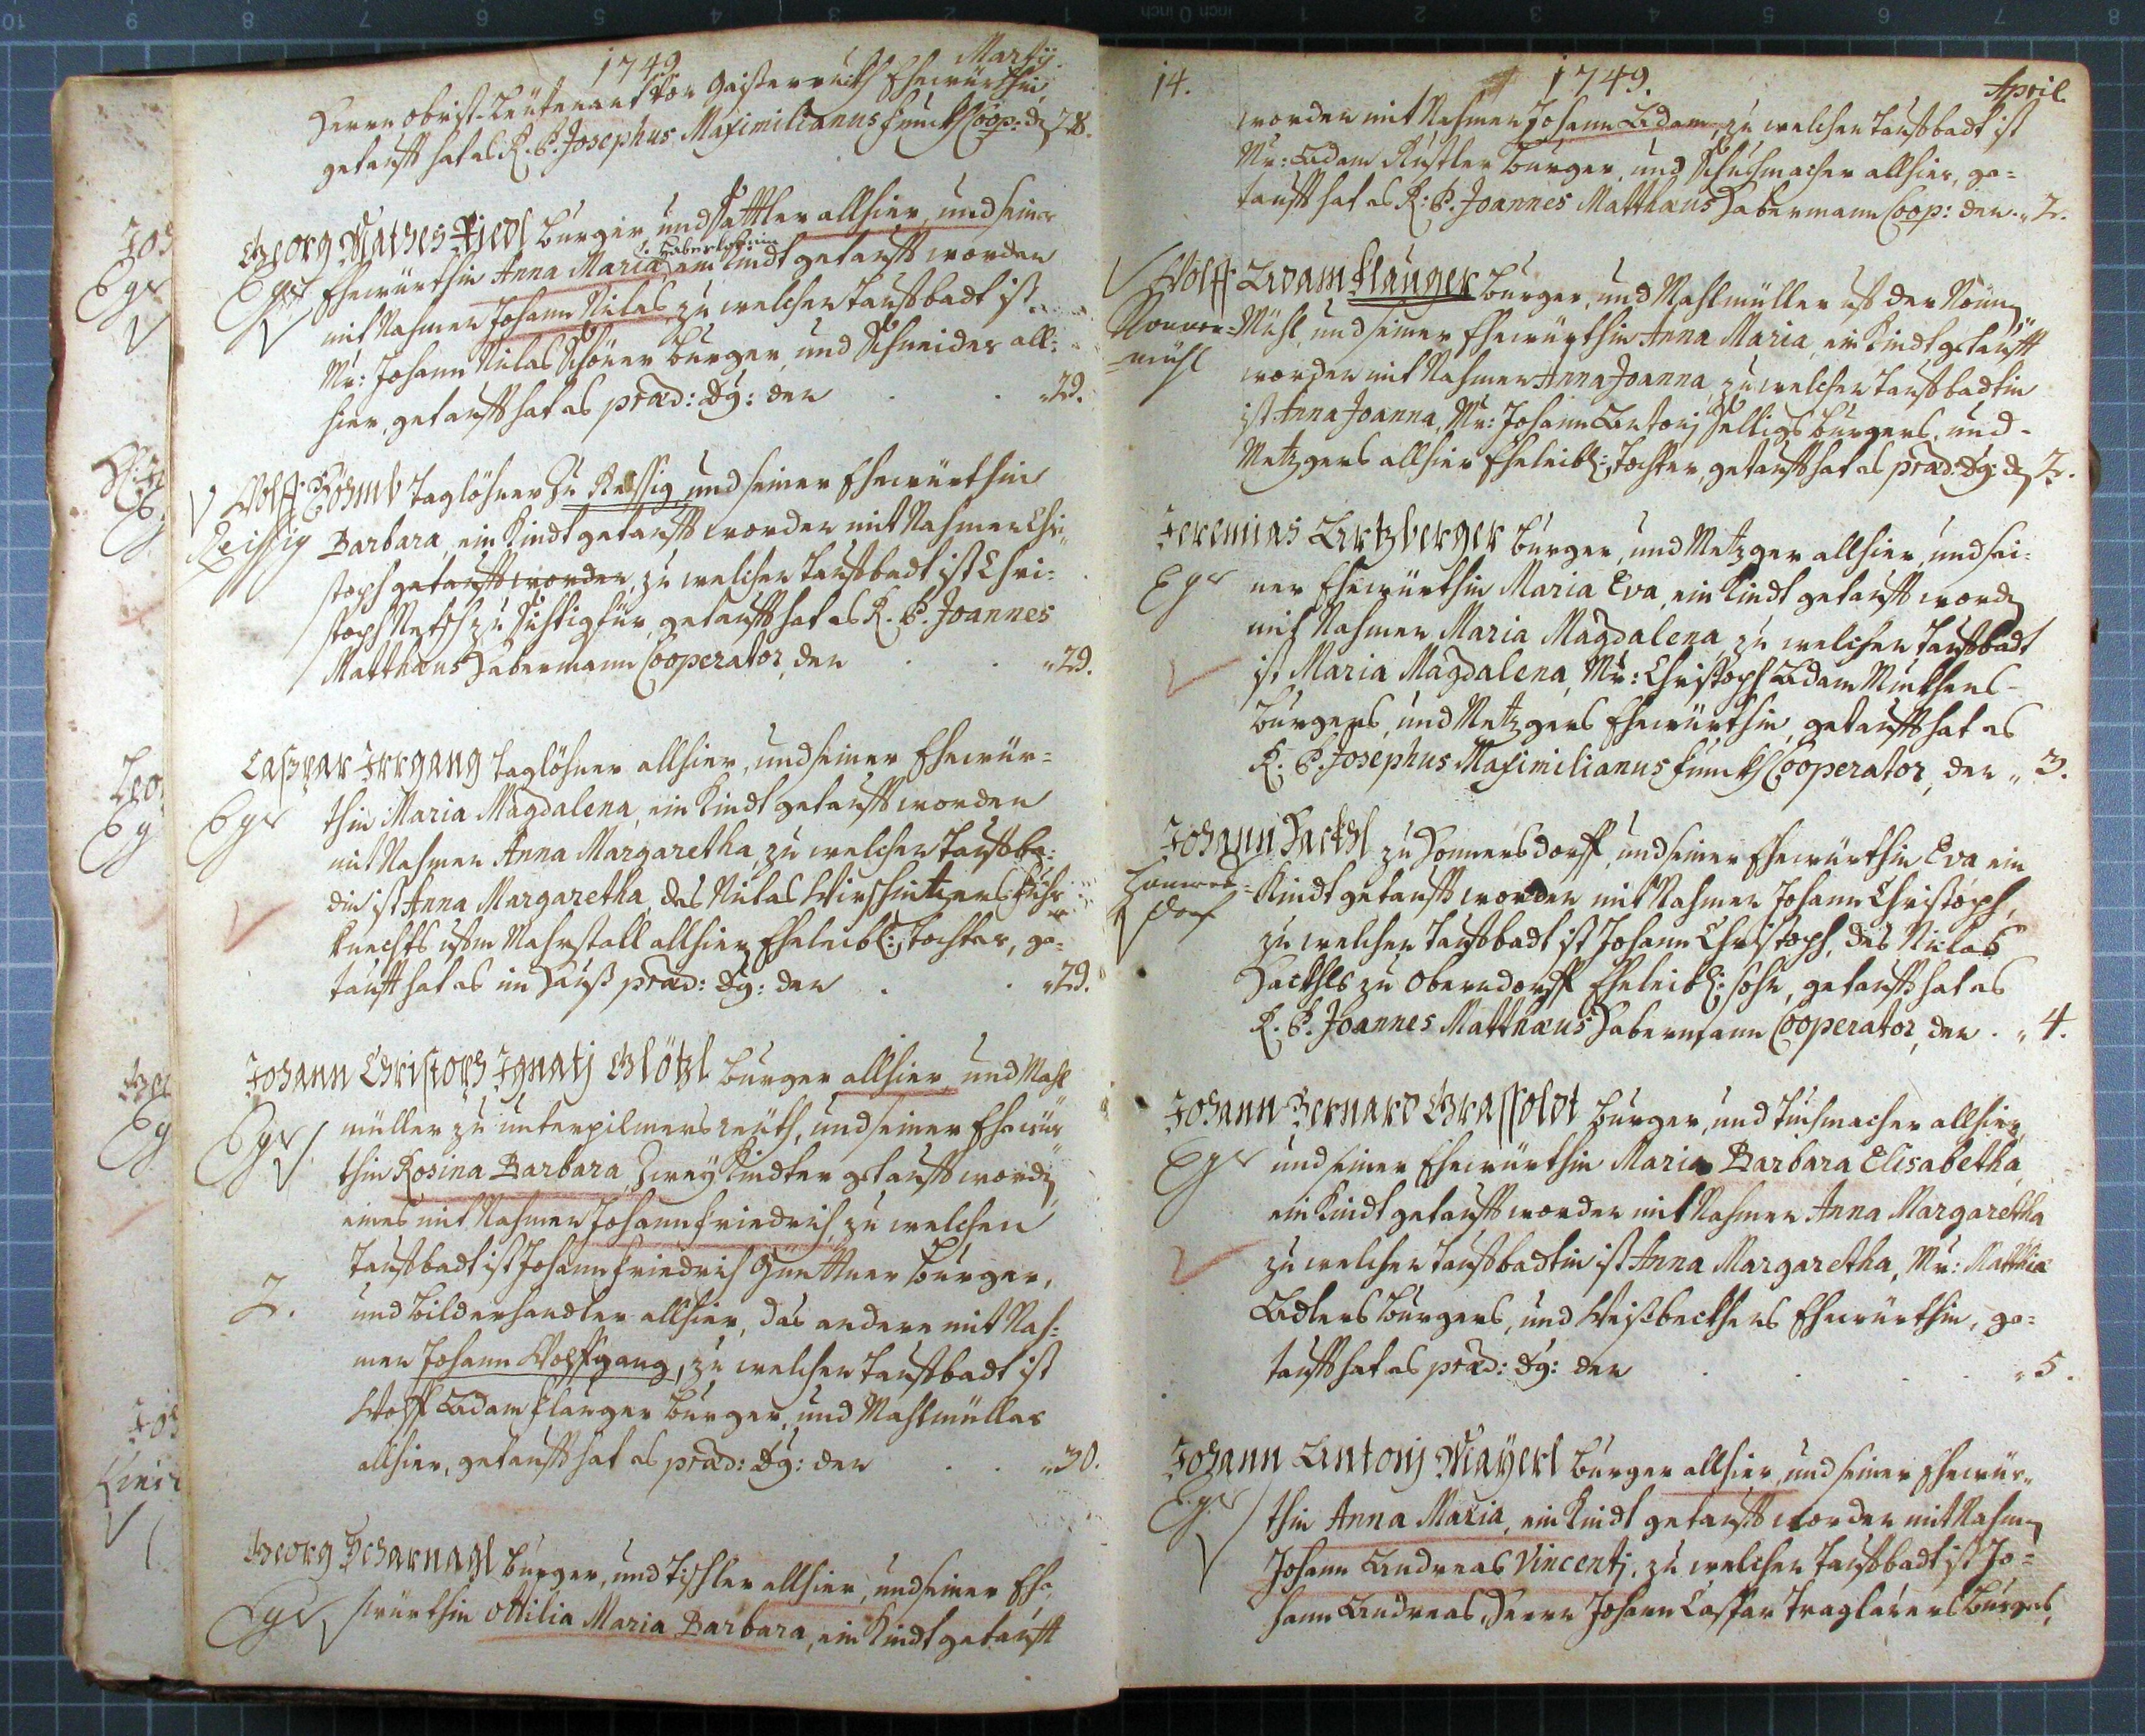 1749 Martij.
Herrn obrist-Leütenant von Geißerreith Ehewürthin,
getaufft hat es R. P. Josephus Maximilianus funckh Coop: d 28.
Georg Mathes Riedl burger und Sattler allhier, und seiner
Eger Ehewürthin Anna Maria ein Kindt getaufft worden
mit Nahmen Johann Niclas, zu welchen Taufbadt ist
Mr: Johann Niclas Schöner burger, und Schneider all-
hier, getaufft hat es præd: Dg: den 29.
Wolff Böhmb Taglöhner zu Reissig und seiner Ehewürthin
Reissig Barbara, ein Kindt getaufft worden mit Nahmen Chri-
stoph getaufft worden, zu welchen Taufbadt ist Chri-
stoph Netsch zu Sichtigfür, getaufft hat es R. P. Joannes
Matthæus Habermann Cooperator, den 29.
Caspar Irrgang Taglöhner allhier, und seiner Ehewür-
Eger thin Maria Magdalena, ein Kindt getaufft worden
mit Nahmen Anna Margaretha, zu welchen Taufba-
din ist Anna Margaretha, des Niclas Wirschnitzers
Knechts ufm Mahrstall allhier Eheleibl: Tochter, ge-
taufft hat es im Hauß præd: Dg: den 29.
Johann Christoph Ignatj Glötzl burger allhier, und Mahl
Eger müller zu unterpilmersreüth, und seiner Ehewür
thin Rosina Barbara, Zweÿ Kindter getaufft word
eines mit Nahmen Johann friedrich, zu welchen
Taufbadt ist Johann friedrich Günttner burger,
2. und Bilderhandler allhier, das andere mit Nah-
men Johann Wolffgang, zu welchen Taufbadt ist
Wolff Adam flauger burger, und Mahlmüller
allhier, getaufft hat es præd: Dg: den 30.
Georg Scharnagl burger, und Tischler allhier, und seiner Ehe
Eger würthin Ottilia Maria Barbara, ein Kindt getaufft
14. 1749. April.
worden mit Nahmen Johann Adam, zu welchen Taufbadt ist
Mr: Adam Küstler burger, und Schuhmacher allhier, ge-
taufft hat es R: P. Joannes Matthæus Habermann Coop: den 2.
Wolff Adam flauger burger, und Mahlmüller uf der Nonn
Nonner- Mühl, und seiner Ehewürthin Anna Maria, ein Kindt getaufft
mühl worden mit Nahmen Anna Joanna, zu welcher Taufbadtin
ist Anna Joanna, Mr: Johann Antonj Helligs burgers, und
Metzgers allhier Eheleibl: Tochter, getaufft hat es præd: Dg: d 2.
Jeremias Artzberger burger, und Metzger allhier, und sei-
Eger ner Ehewürthin Maria Eva, ein Kindt getaufft word
mit Nahmen Maria Magdalena, zu welchen Taufbadt
ist Maria Magdalena, Mr: Christoph Adam Minkhers
burgers, und Metzgers Ehewürthin, getaufft hat es
R. P. Josephus Maximilianus funckh Cooperator, den 3.
Johann Hackhl zu Honnersdorff, und seiner Ehewürthin Eva, ein
Honners- Kindt getaufft worden mit Nahmen Johann Christoph,
dorf zu welchen Taufbadt ist Johann Christoph, des Niclas
Hackhls zu Oberndorff Eheleibl: Sohn, getaufft hat es
R. P. Joannes Matthæus Habermann Cooperator, den 4.
Johann Bernard Grassoldt burger, und Tuchmacher allhier,
Eger und seiner Ehewürthin Maria Barbara Elisabetha,
ein Kindt getaufft worden mit Nahmen Anna Margaretha
zu welcher Taufbadtin ist Anna Margaretha, Mr: Matthiæ
Adlers burgers, und Weißbeckhens Ehewürthin, ge-
taufft hat es præd: Dg: den 5.
Johann Antonj Maÿerl burger allhier, und seiner Ehewür-
Eger thin Anna Maria, ein Kindt getaufft worden mit Nahm
Johann Andreas Vincentj, zu welchen Taufbadt ist Jo-
hann Andreas, Herrn Johann Caspar Traglauers burgers,